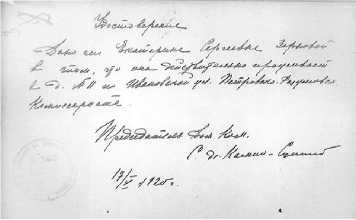 Удостоверение
Дано сие Екатерине Сергеевне
в том, что она действительно проживает
в д. №11 по Ивановской ул. Петровско-Разумовск.
Комиссариата.
Председатель Дом. Ком.
С др.
13/V 1920 г.